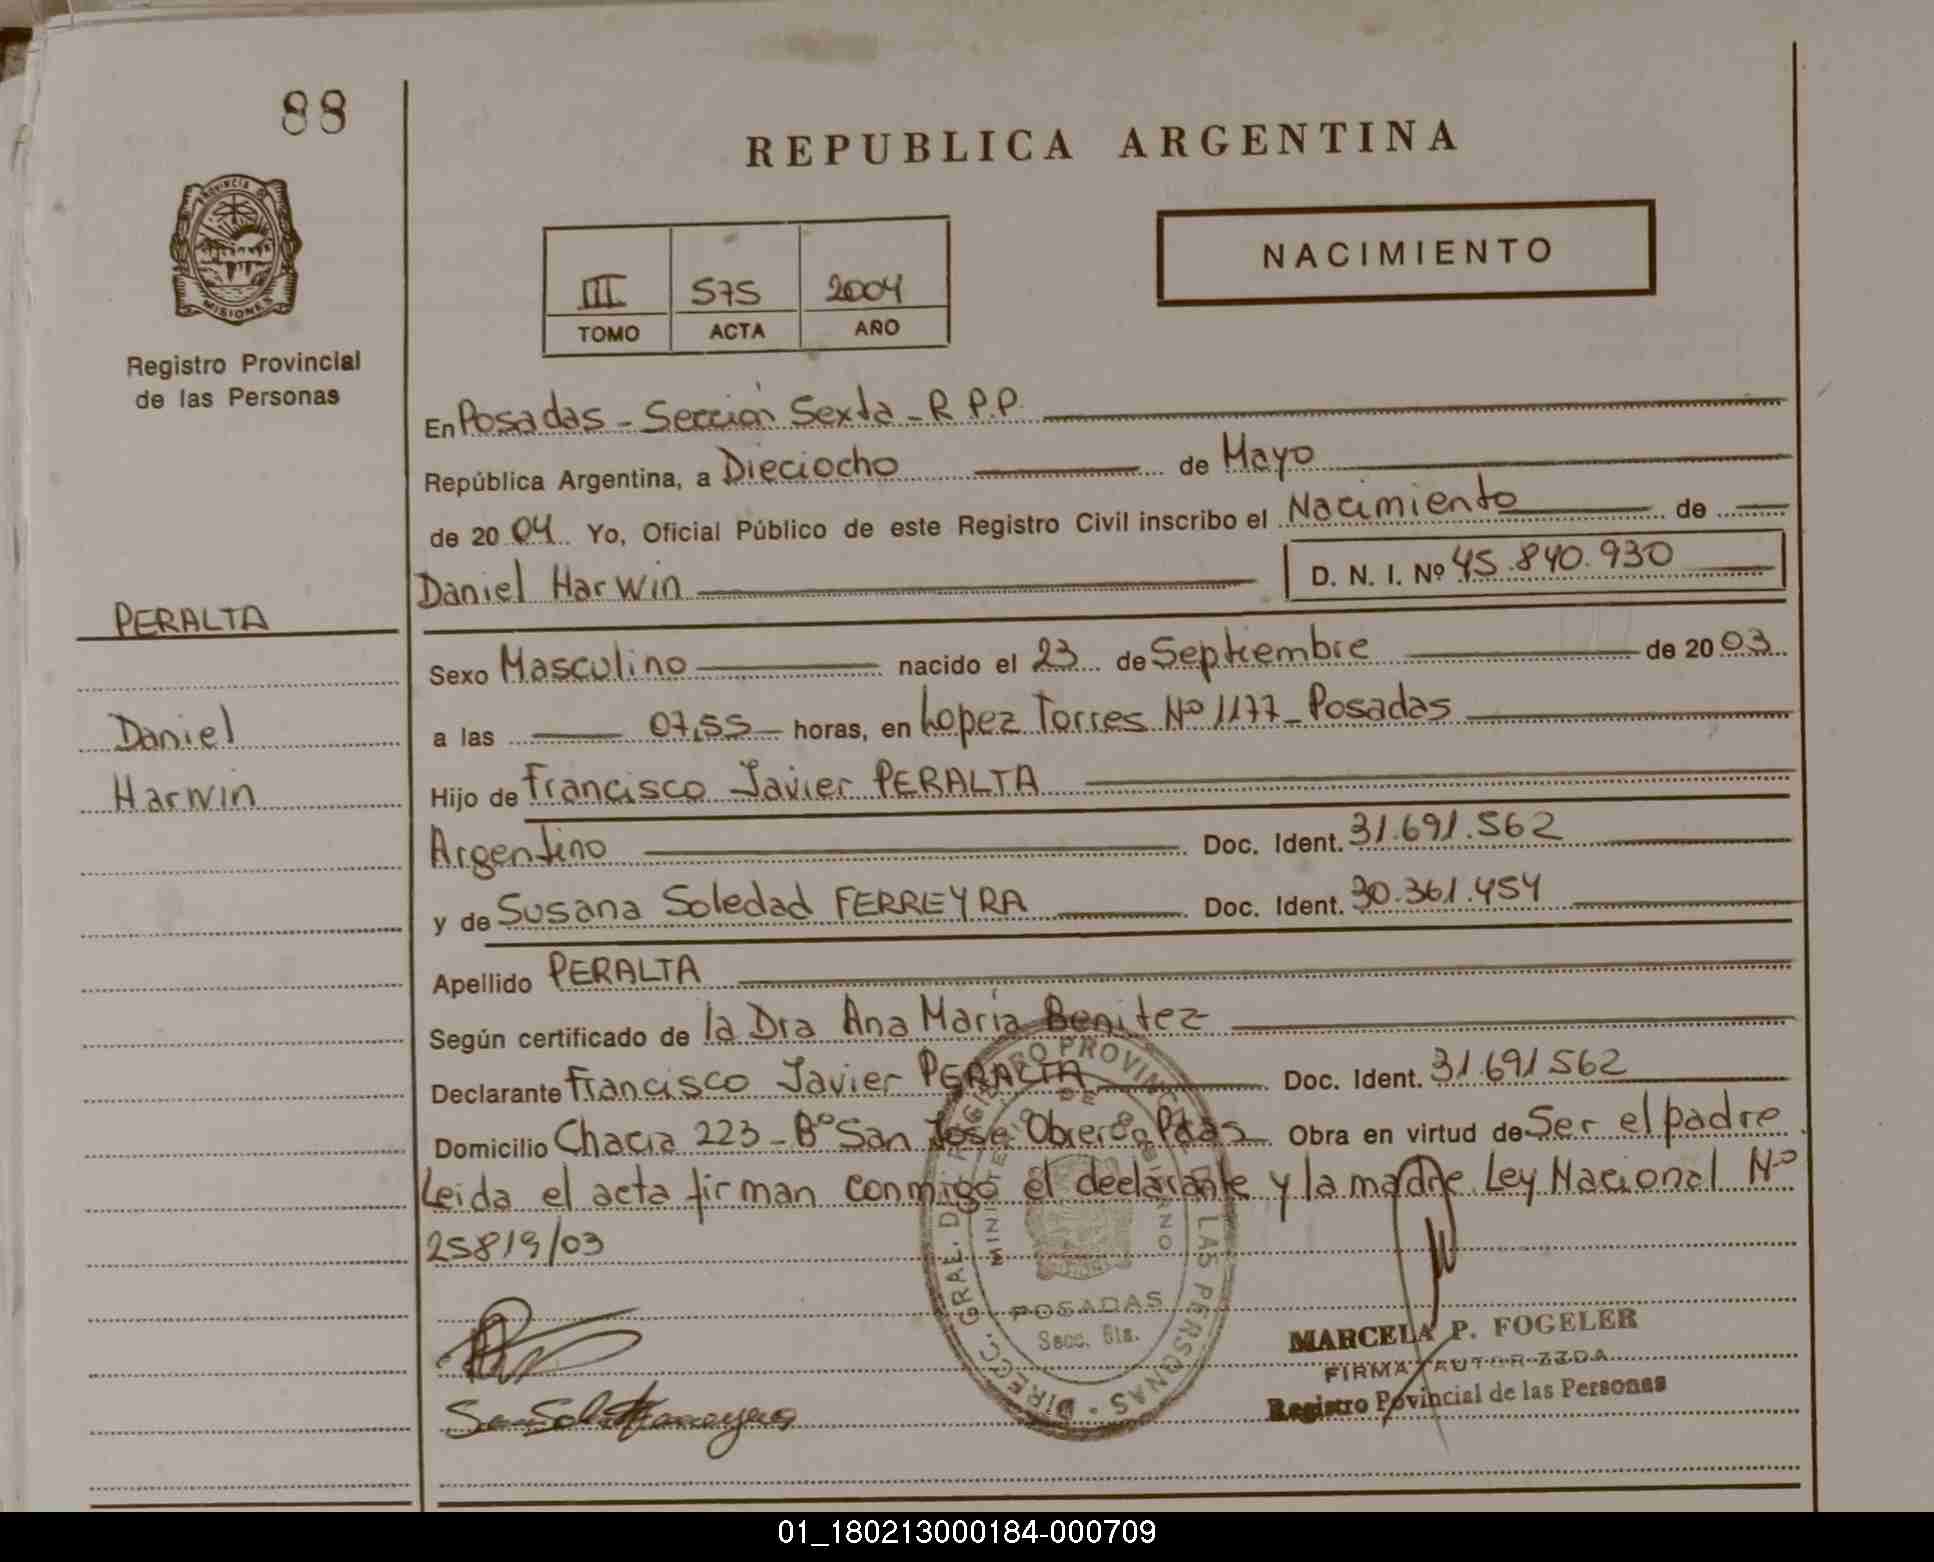 88
REPUBLICA ARGENTINA
PROVINCIA DE
MISIONES
NACIMIENTO
III 575 2004
TOMO ACTA AÑO
Registro Provincial
de las Personas
En Posadas - Sección Sexta - R.P.P.
República Argentina, a Dieciocho de Mayo
de 2004 Yo, Oficial Público de este Registro Civil inscribo el Nacimiento de
Daniel Harwin D. N. I. Nº 45.840.930
PERALTA
Sexo Masculino nacido el 23 de Septiembre de 2003
Daniel
a las 07,55 horas, en Lopez Torres Nº 1177 - Posadas
Harwin
Hijo de Francisco Javier PERALTA
Argentino Doc. Ident. 31.691.562
y de Susana Soledad FERREYRA Doc. Ident. 30.361.454
Apellido PERALTA
Según certificado de la Dra Ana María Benitez
Declarante Francisco Javier PERALTA Doc. Ident. 31.691.562
Domicilio Chacra 223 - Bº San José Obrero Pdas Obra en virtud de Ser el padre
Leida el acta firman conmigo el declarante y la madre Ley Nacional Nº
25819/03
DIRECC. GRAL. DEL REGISTRO PROVINCIAL DE LAS PERSONAS
MINISTERIO DE GOBIERNO
POSADAS
Secc. 6ta.
MARCELA P. FOGELER
FIRMA AUTORIZADA
Registro Povincial de las Personas
01_180213000184-000709